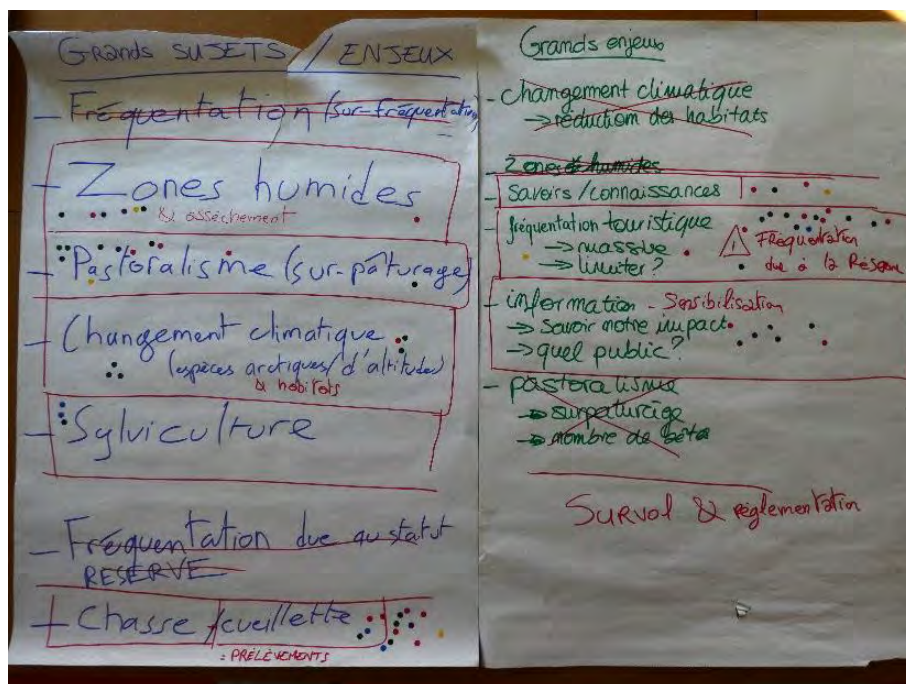 Grands SUJETS / ENJEUX
- Fréquentation (sur-fréquentation)
- Zones humides
& assèchement
- Pastoralisme (sur-pâturage)
- Changement climatique
(espèces arctiques/d'altitudes)
& habitats
- Sylviculture
- Fréquentation due au statut
RESERVE
- Chasse /cueillette
= PRÉLÈVEMENTS
Grands enjeux
- changement climatique
→ réduction des habitats
- Zones humides
- savoirs/connaissances
- fréquentation touristique
→ massive
→ limiter?
! Fréquentation
due à la Réserve
- information - Sensibilisation
→ savoir notre impact
→ quel public?
- pastoralisme
→ surpaturage
→ nombre de bête
Survol & réglementation